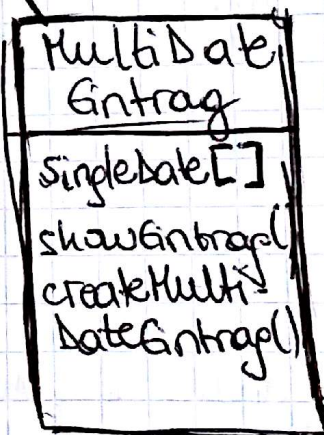 MultiDate
Eintrag
singleDate[]
showEintrag()
createMulti-
DateEintrag()